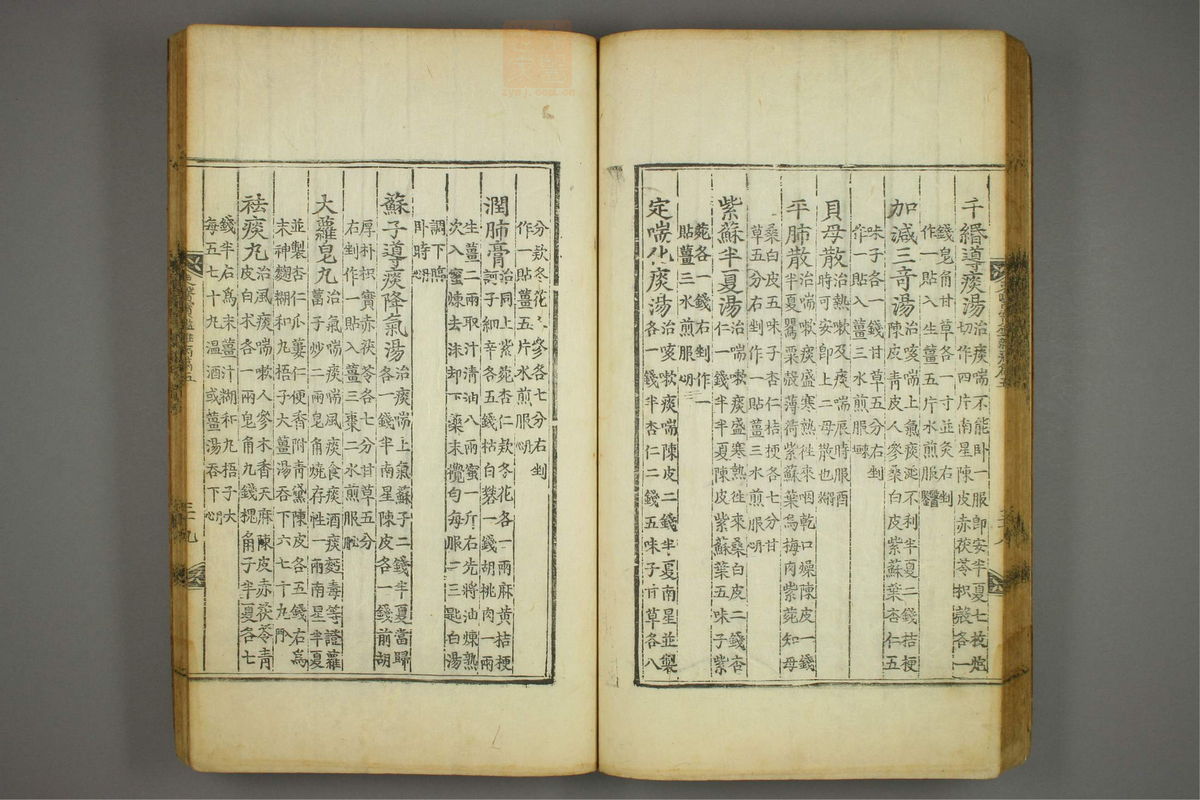 千緡導痰湯治痰喘不能臥一服卽安半夏七枚炮
切作四片南星陳皮赤茯苓枳殼各一
錢皂角甘草各一寸並灸右剉
作一貼入生薑五片水煎服醫鑑
加減三奇湯治咳喘上氣痰涎不利半夏二錢桔梗
陳皮靑皮人參桑白皮紫蘇葉杏仁五
味子各一錢甘草五分右剉
作一貼入薑三水煎服
貝母散治熱嗽及痰喘辰時服酉
時可安卽上二母散也
平肺散治喘嗽痰盛寒熱往來咽乾口燥陳皮一錢
半夏罌粟殼薄荷紫蘇葉烏梅肉紫菀知母
桑白皮五味子杏仁桔梗各七分甘
草五分右剉作一貼薑三水煎服
紫蘇半夏湯治喘嗽痰盛寒熱往來桑白皮二錢杏
仁各一錢半半夏陳皮紫蘇葉五味子紫
菀各一錢右剉作一
貼薑三水煎服
定喘化痰湯治咳嗽痰喘陳皮二錢半夏南星並製
各一錢半杏仁二錢五味子甘草各八
分款冬花人參各七分右剉
作一貼薑五片水煎服
潤肺膏治同上紫菀杏仁款冬花各一兩麻黃桔梗
訶子細辛各五錢枯白礬一錢胡桃肉一兩
生薑二兩取汁淸油八兩蜜一斤右先將油煉熟
次入蜜煉去沫却下藥末攪勻每服二三匙白湯
調下臨
臥時
蘇子導痰降氣湯治痰喘上氣蘇子二錢半夏當歸
各一錢半南星陳皮各一錢前胡
厚朴枳實赤茯苓各七分甘草五分
右剉作一貼入薑三棗二水煎服
大蘿皂丸治氣喘痰喘風痰食痰酒痰麪毒等證蘿
葍子炒二兩皂角燒存性一兩南星半夏
並製杏仁瓜蔞仁便香附靑黛陳皮各五錢右爲
末神麴糊和丸梧子大薑湯呑下六七十丸
祛痰丸治風痰喘嗽人參木香天麻陳皮赤茯苓靑
皮白朮各一兩皂角九錢槐角子半夏各七
錢半右爲末薑汁糊和丸梧子大
每五七十丸溫酒或薑湯呑下
三十九